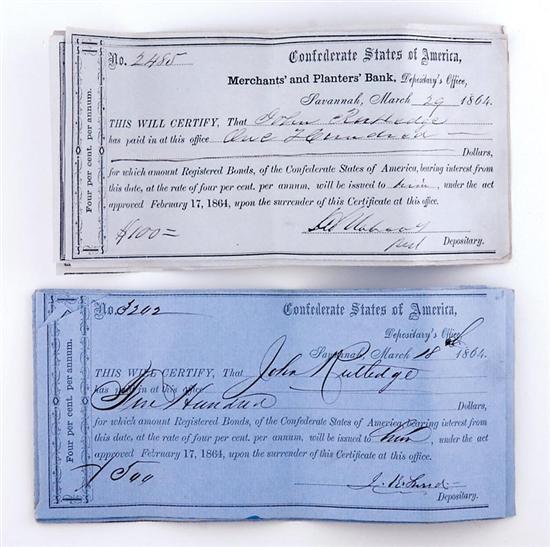 No. 2485 Confederate States of America,
Merchants' and Planters' Bank, Depositary's Office,
Savannah, March 29 1864.
THIS WILL CERTIFY, That John Rutledge
has paid in at this office One Hundred
Dollars,
for which amount Registered Bonds, of the Confederate States of America, bearing interest from
this date, at the rate of four per cent. per annum, will be issued to him, under the act
approved February 17, 1864, upon the surrender of this Certificate at this office.
$100=
Depositary.
Four per cent. per annum.
No. 3202 Confederate States of America,
Depositary's Office,
Savannah, March 18 1864.
THIS WILL CERTIFY, That John Rutledge
has paid in at this office
Five Hundred Dollars,
for which amount Registered Bonds, of the Confederate States of America, bearing interest from
this date, at the rate of four per cent. per annum, will be issued to him, under the act
approved February 17, 1864, upon the surrender of this Certificate at this office.
$500
Depositary.
Four per cent. per annum.